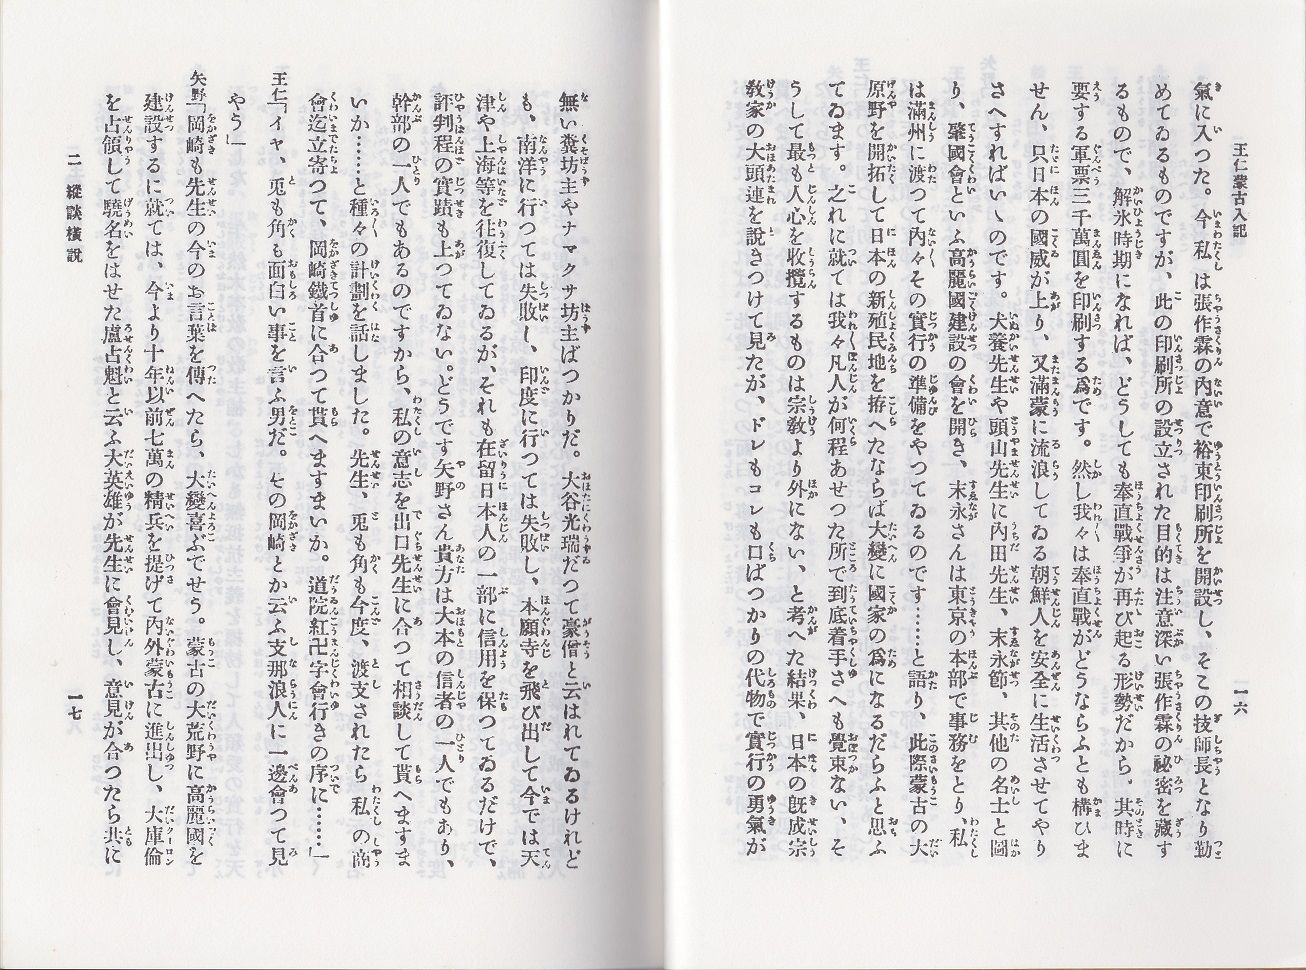 王仁蒙古入記
一六
氣に入つた。今私は張作霖の內意で裕東印刷所を開設し、そこの技師長となり勤
めてゐるものですが、此の印刷所の設立された目的は注意深い張作霖の秘密を藏す
るもので、解氷時期になれば、どうしても奉直戰爭が再び起る形勢だから。其時に
要する軍票三千萬圓を印刷する爲です。然し我々は奉直戰がどうならふとも構ひま
せん、只日本の國威が上り、又滿蒙に流浪してゐる朝鮮人を安全に生活させてやり
さへすればいゝのです。犬養先生や頭山先生に內田先生、末永節、其他の名士と圖
り、肇國會といふ高麗國建設の會を開き、末永さんは東京の本部で事務をとり、私
は滿州に渡つて內々その實行の準備をやつてゐるのです……と語り、此際蒙古の大
原野を開拓して日本の新殖民地を拵へたならば大變に國家の爲になるだらふと思ふ
てゐます。之れに就ては我々凡人が何程あせつた所で到底着手さへも覺束ない、そ
うして最も人心を收攬するものは宗敎より外にない、と考へた結果、日本の旣成宗
敎家の大頭連を說きつけて見たが、ドレもコレも口ばつかりの代物で實行の勇氣が
無い糞坊主やナマクサ坊主ばつかりだ。大谷光瑞だつて豪僧と云はれてゐるけれど
も、南洋に行つては失敗し、印度に行つては失敗し、本願寺を飛び出して今では天
津や上海等を往復してゐるが、それも在留日本人の一部に信用を保つてゐるだけで、
評判程の實蹟も上つてゐない。どうです矢野さん貴方は大本の信者の一人でもあり、
幹部の一人でもあるのですから、私の意志を出口先生に合つて相談して貰へますま
いか……と種々の計劃を話しました。先生、兎も角も今度、渡支されたら私の商
會迄立寄つて、岡崎鐵首に合つて貰へますまいか。道院紅卍字會行きの序に……」
王仁「イヤ、兎も角も面白い事を言ふ男だ。その岡崎とか云ふ支那浪人に一邊會つて見
やう」
矢野「岡崎も先生の今のお言葉を傳へたら、大變喜ぶでせう。蒙古の大荒野に高麗國を
建設するに就ては、今より十年以前七萬の精兵を提げて內外蒙古に進出し、大庫倫
を占領して驍名をはせた盧占魁と云ふ大英雄が先生に會見し、意見が合つたら共に
二 縱談橫說
一七